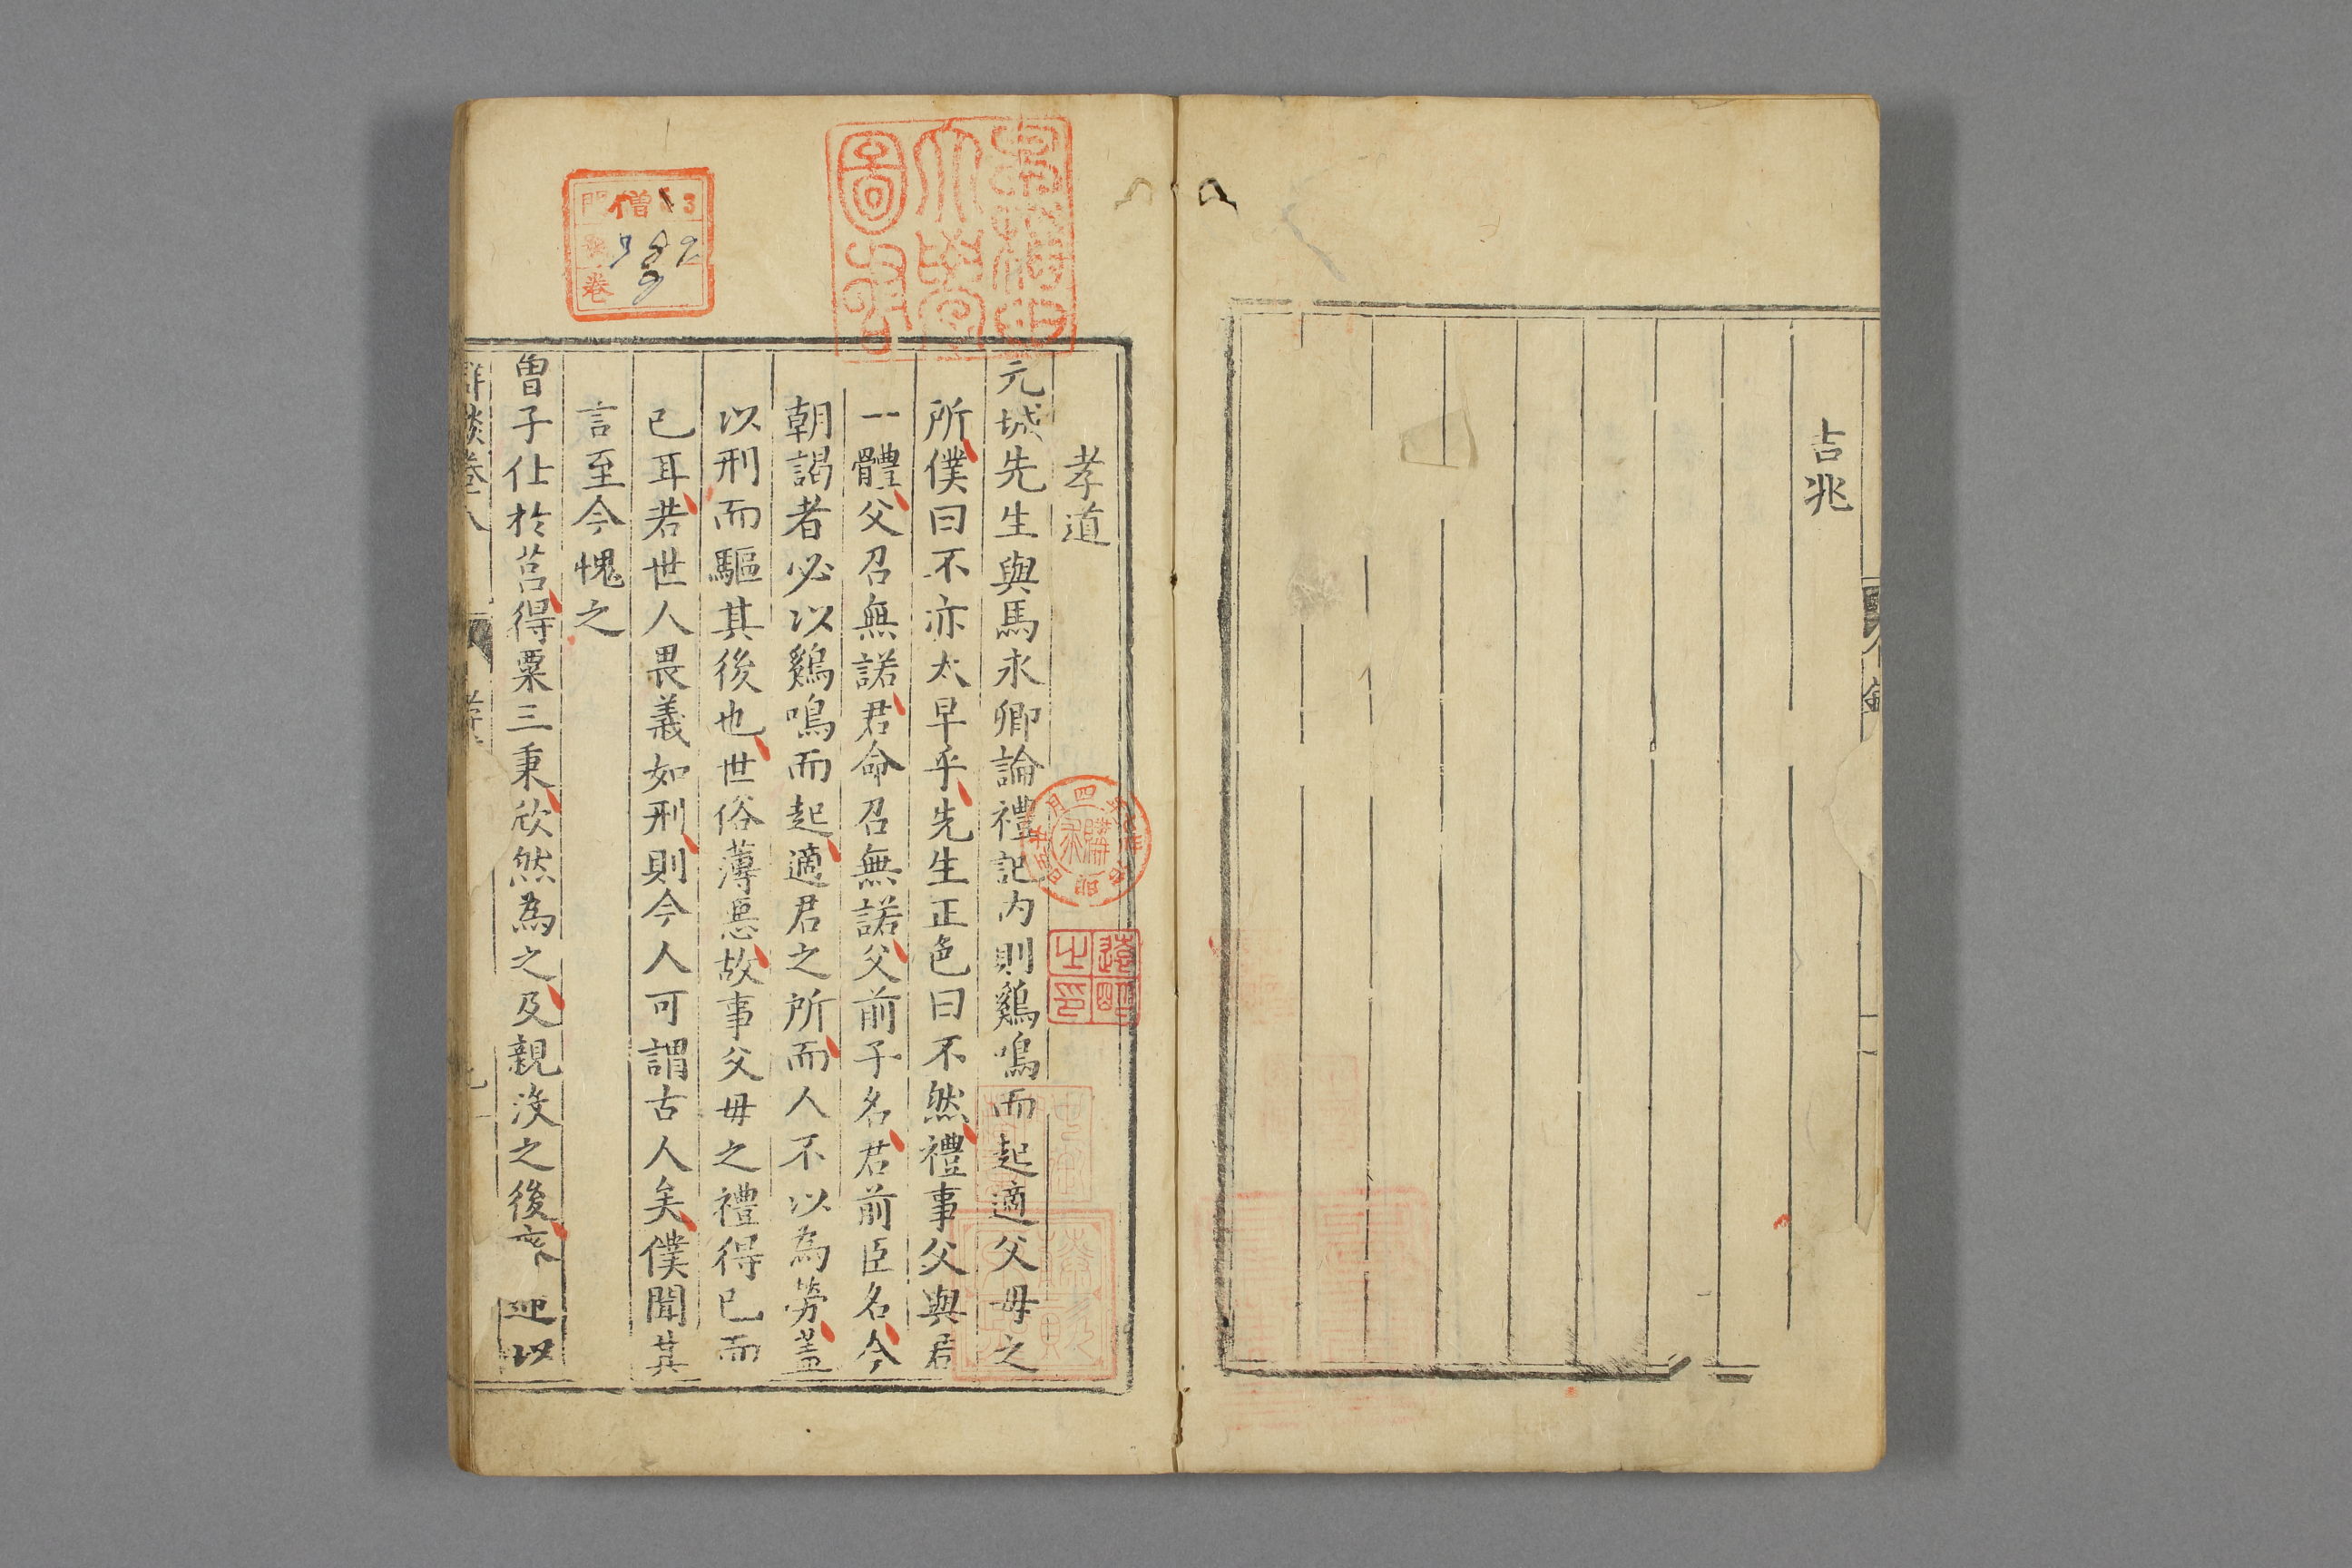 吉兆
孝道
元城先生與馬永卿論禮記内則鷄鳴而起適父母之
所僕曰不亦太早乎先生正色曰不然禮事父與君
一體父召無諾君命召無諾父前子名君前臣名今
朝謁者必以鷄鳴而起適君之所而人不以為勞蓋
以刑而驅其後也世俗薄惡故事父母之禮得已而
已耳若世人畏義如刑則今人可謂古人矣僕聞其
言至今愧之
曾子仕於莒得粟三秉欣然為之及親没之後 迎以
卷八
僧 3
782
卷 9